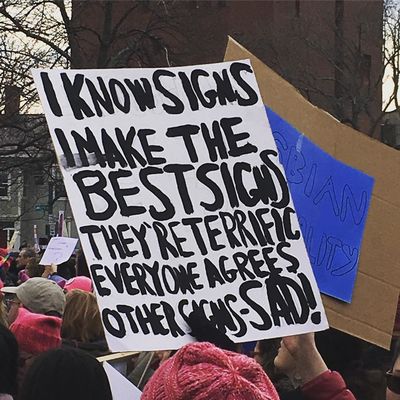 I KNOW SIGNS
I MAKE THE
BEST SIGNS
THEY'RE TERRIFIC
EVERYONE AGREES
OTHER SIGNS-SAD!